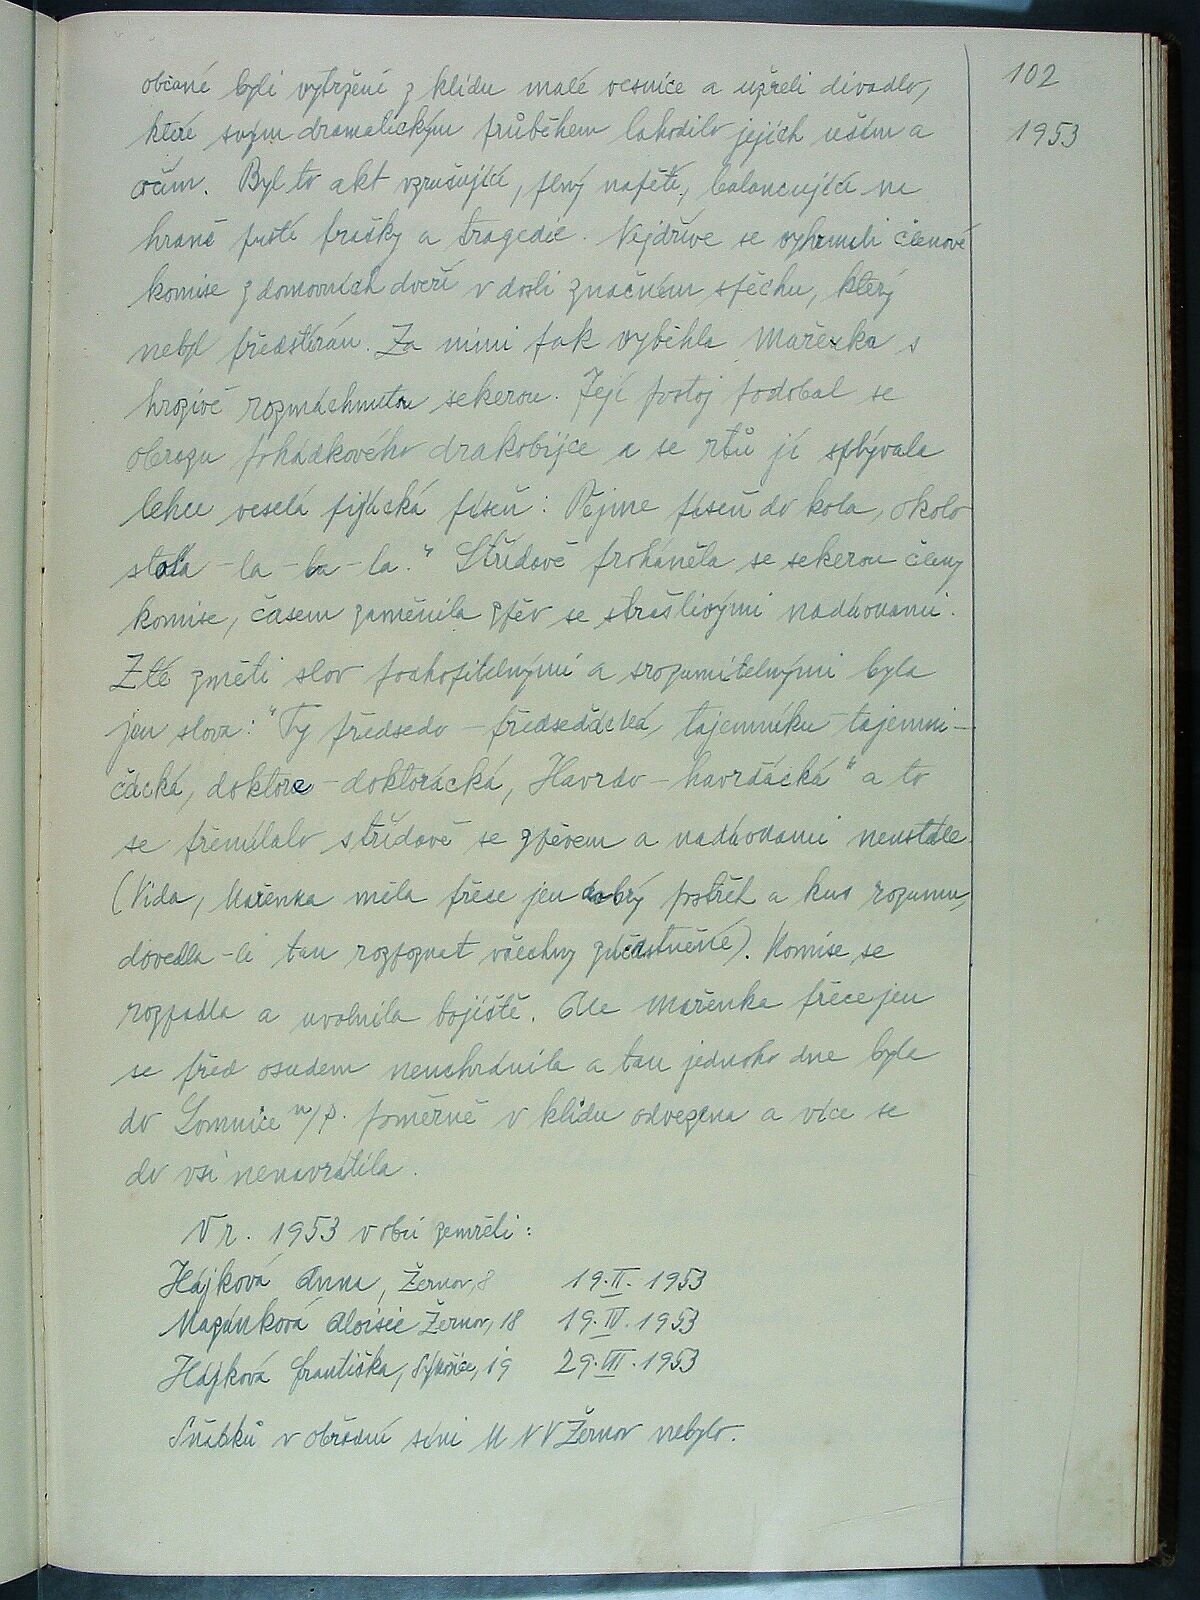 102
1953
občané byli vytržení z klidu malé vesnice a uzřeli divadlo,
které svým dramatickým průběhem lahodilo jejich uším a
očím. Byl to akt vzrušující, plný napětí, balancující na
hraně pusté frašky a tragedie. Nejdříve se vyhrnuli členové
komise z domovních dveří v dosti značném spěchu, který
nebyl předstírán. Za nimi pak vyběhla Mařenka s
hrozivě rozmáchnutou sekerou. Její postoj podobal se
obrazu pohádkového drakobijce a se rtů jí splývala
lehce veselá pijácká píseň: Pějme píseň do kola, okolo
stola -la-la-la." Střídavě proháněla se sekerou členy
komise, časem zaměnila zpěv se strašlivými nadávkami.
Z té změti slov pochopitelnými a srozumitelnými byla
jen slova: "Ty předsedo - předsedácká, tajemníku - tajemni-
čácká, doktore - doktorácká, Havrdo - havrďácká" a to
se přemílalo střídavě se zpěvem a nadávkami neustále
(Vida, Mařenka měla přece jen dobrý postřeh a kus rozumu,
dovedla-li tau rozpoznat všechny zúčastněné). Komise se
rozpadla a uvolnila bojiště. Ale Mařenka přece jen
se před osudem neuchránila a tau jednoho dne byla
do Lomnice n/P. poměrně v klidu odvezena a více se
do vsi nenavrátila.
V r. 1953 v obci zemřeli:
Hájková Anna, Žernov, 8 19.II. 1953
Mazánková Aloisie Žernov, 18 19.IV. 1953
Hájková Františka, Sýkořice, 19 29.VII. 1953
Sňatků v obřadní síni MNV Žernov nebylo.